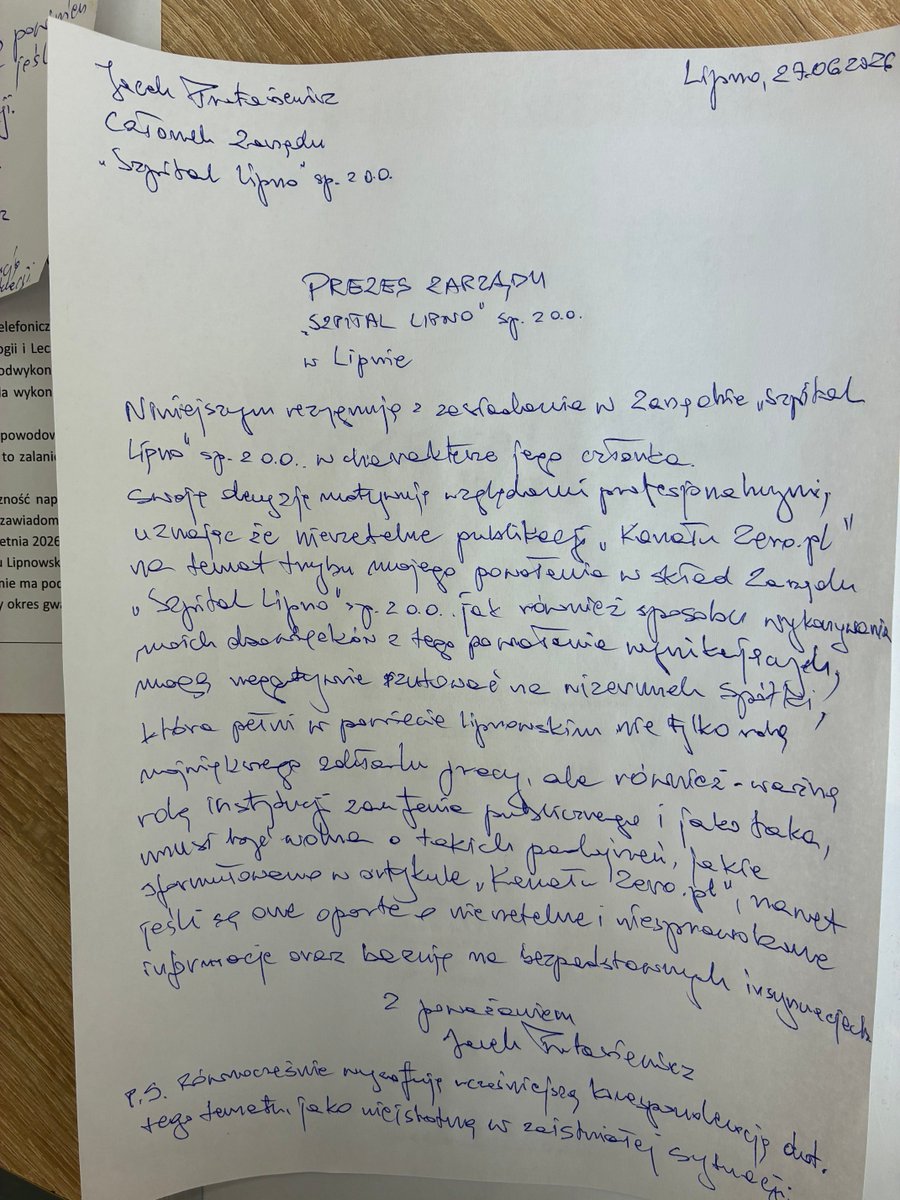 Lipno, 27.06.2026
Jacek
Członek Zarządu
„Szpital Lipno" sp. z o.o.
PREZES ZARZĄDU
„SZPITAL LIPNO" sp. z o.o.
w Lipnie
Niniejszym rezygnuję z zasiadania w Zarządzie „Szpital
Lipno" sp. z o.o. w charakterze jego członka.
Swoją decyzję motywuję względami profesjonalnymi,
uznając że nierzetelne publikacje „Kanału Zero.pl"
na temat trybu mojego powołania w skład Zarządu
„Szpital Lipno" sp. z o.o. jak również sposobu wykonywania
moich obowiązków z tego powołania wynikających,
mogą negatywnie rzutować na wizerunek Spółki,
która pełni w powiecie lipnowskim nie tylko rolę
największego zakładu pracy, ale również - ważną
rolę instytucji zaufania publicznego i jako taka,
musi być wolna o takich podejrzeń, jakie
sformułowano w artykule „Kanału Zero.pl", nawet
jeśli są one oparte o nierzetelne i niesprawdzone
informacje oraz bazują na bezpodstawnych insynuacjach
Z poważaniem
Jacek
P.S. Równocześnie wycofuję wcześniejszą korespondencję dot.
tego tematu, jako nieistotną w zaistniałej sytuacji.
elefonicz
ogii i Lec
odwykon
a wykon
powodow
to zalani
zność nap
zawiadom
etnia 2026
u Lipnowsk
nie ma pod
y okres gwa